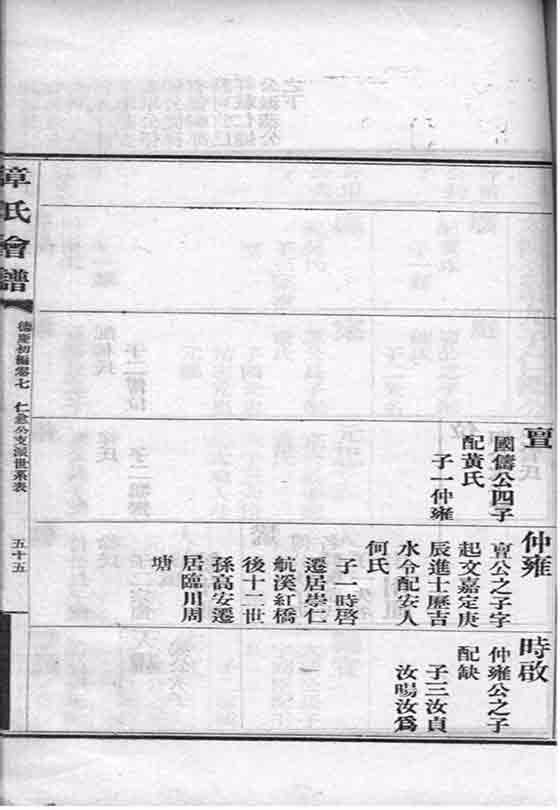 亶
國儔公四子
配黃氏
子一仲雍
仲雍
亶公之子字
起文嘉定庚
辰進士歷吉
水令配安人
何氏
子一時啓
遷居崇仁
航溪紅橋
後十二世
孫高安遷
居臨川周
塘
時啟
仲雍公之子
配缺
子三汝貞
汝暘汝爲
章氏會譜
德慶初編卷七
仁金公支派世系表
五十五